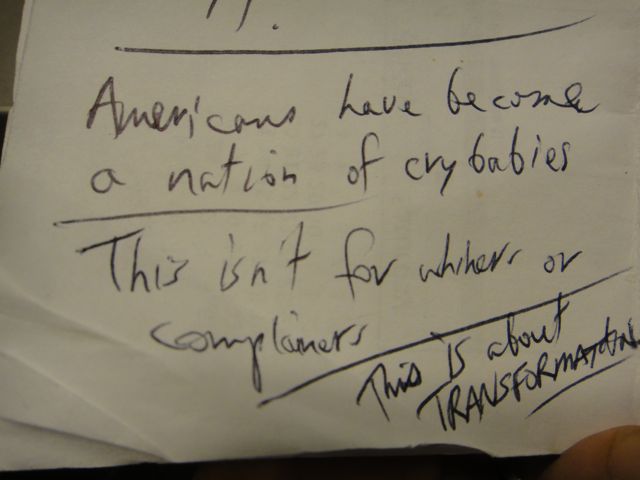 Americans have become
a nation of crybabies
This isn't for whiners or
complainers
This is about
TRANSFORMATION